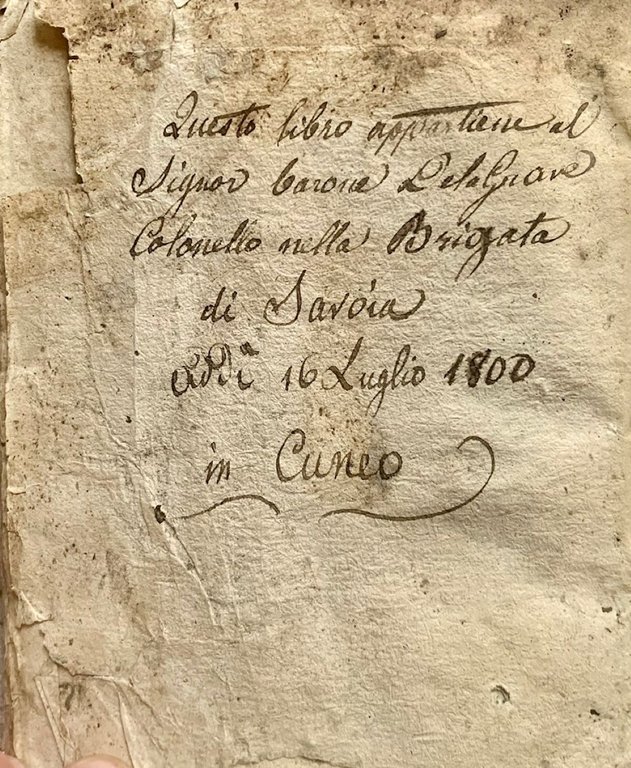 Questo libro appartiene al
Signor barone DelaGrave
Colonello nella Brigata
di Savoia
addì 16 Luglio 1800
in Cuneo